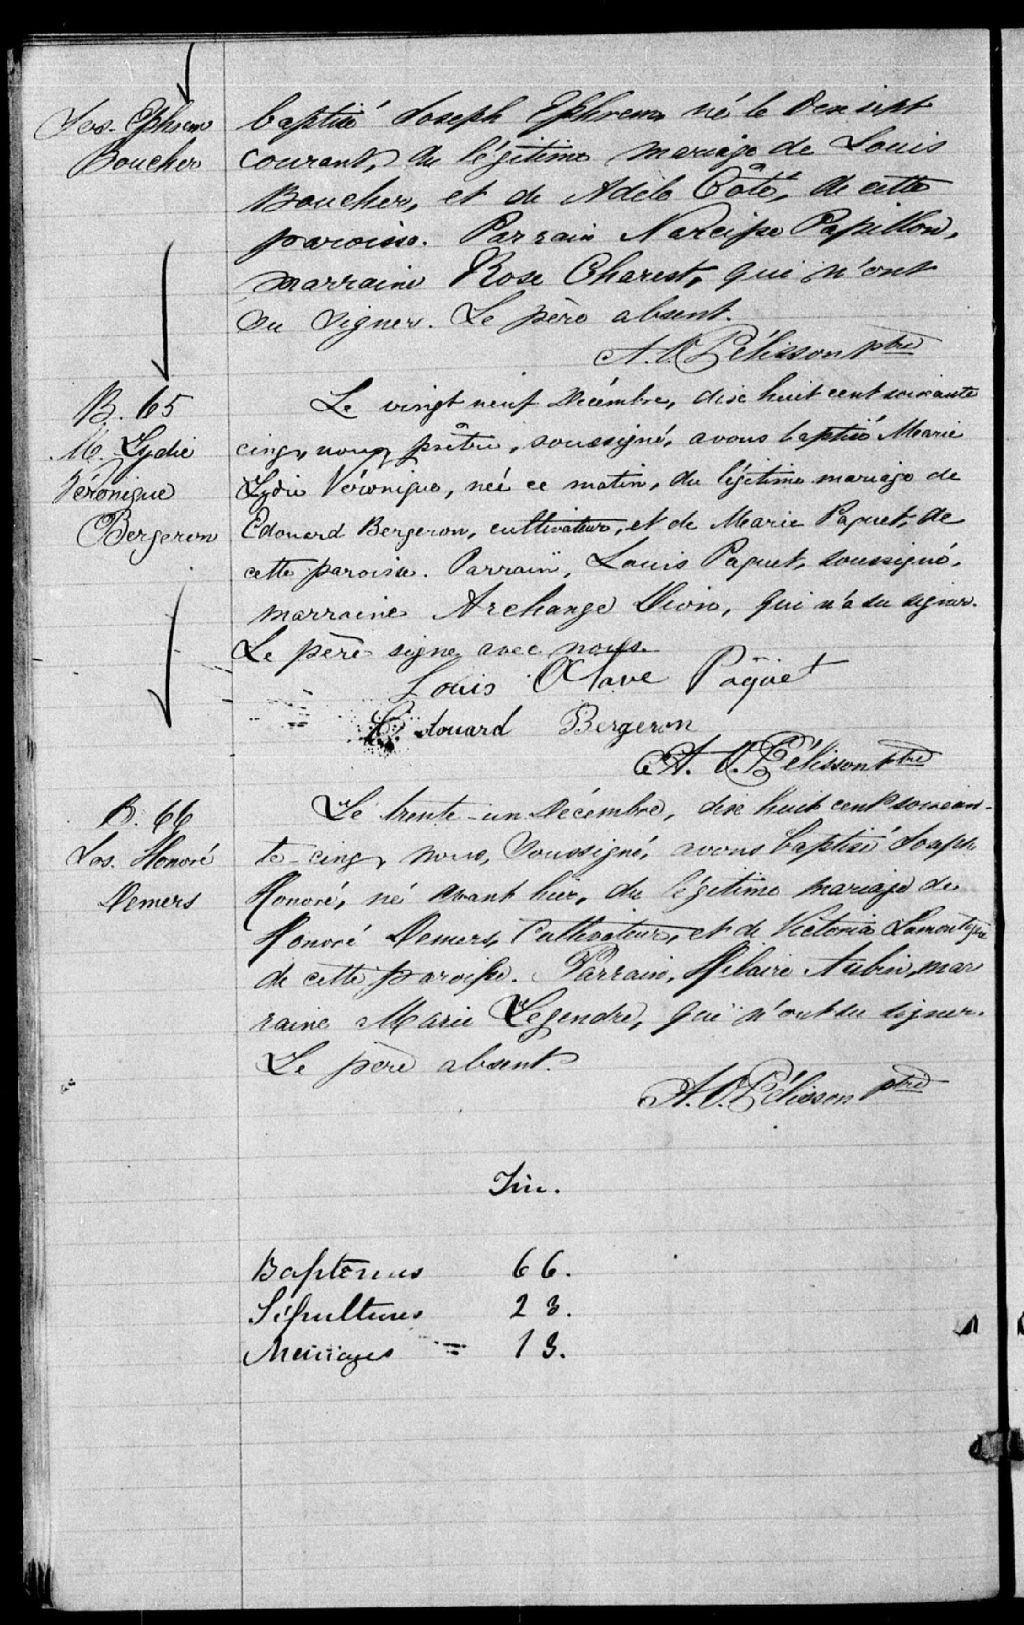 Jos. Ephrem
Boucher
baptisé Joseph Ephrem né le dix sept
courant, du légitime mariage de Louis
Boucher, et de Adèle Côté, de cette
paroisse. Parrain Narcisse Papillon,
marraine Rose Charest, qui n'ont
su signer. Le père absent.
A. O. Pélisson ptre
B. 65
M. Lydie
Véronique
Bergeron
Le vingt neuf Décembre, dix huit cent soixante
cinq, nous, prêtre, soussigné, avons baptisé Marie
Lydie Véronique, née ce matin, du légitime mariage de
Edouard Bergeron, cultivateur, et de Marie Paquet, de
cette paroisse. Parrain, Louis Paquet, soussigné,
marraine Archange Dion, qui n'a su signer.
Le père signe avec nous.
Louis Octave Paquet
Edouard Bergeron
A. O. Pélisson ptre
B. 66
Jos. Honoré
Demers
Le trente-un Décembre, dix huit cent soixan-
te-cinq, nous, soussigné, avons baptisé Joseph
Honoré, né avant hier, du légitime mariage de
Honoré Demers, Cultivateur, et de Victoria Lamontagne
de cette paroisse. Parrain, Hilaire Aubin, mar
raine Marie Legendre, qui n'ont su signer.
Le père absent.
A. O. Pélisson ptre
Fin.
Baptêmes 66.
Sépultures 23.
Mariages = 13.